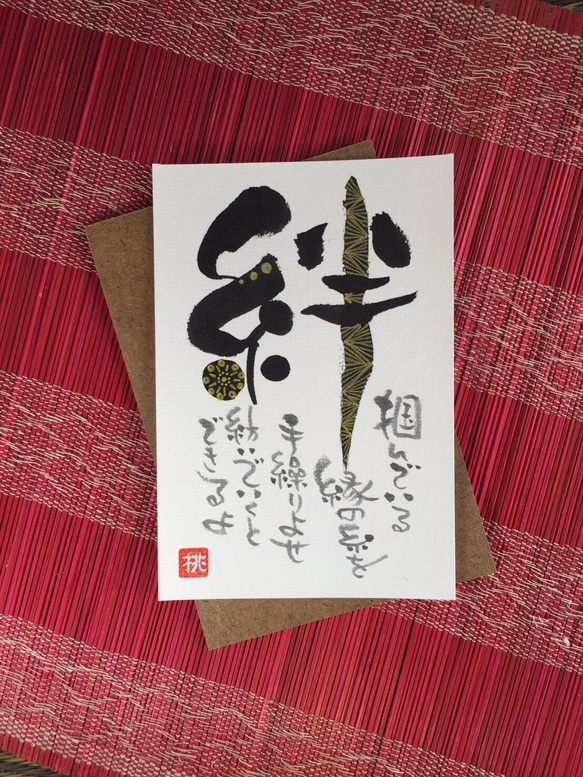 絆
掴んでいる
縁の糸を
手繰りよせ
紡いでいくと
できるよ
桃